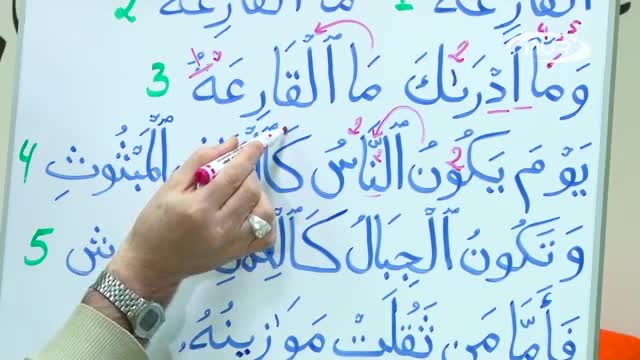 ٱلۡقَارِعَةُ 1 مَا ٱلۡقَارِعَةُ 2
وَمَآ أَدۡرَىٰكَ مَا ٱلۡقَارِعَةُ 3
يَوۡمَ يَكُونُ ٱلنَّاسُ ٱلۡمَبۡثُوثِ 4
وَتَكُونُ ٱلۡجِبَالُ 5
فَأَمَّا مَن ثَقُلَتۡ مَوَٰزِينُهُۥ